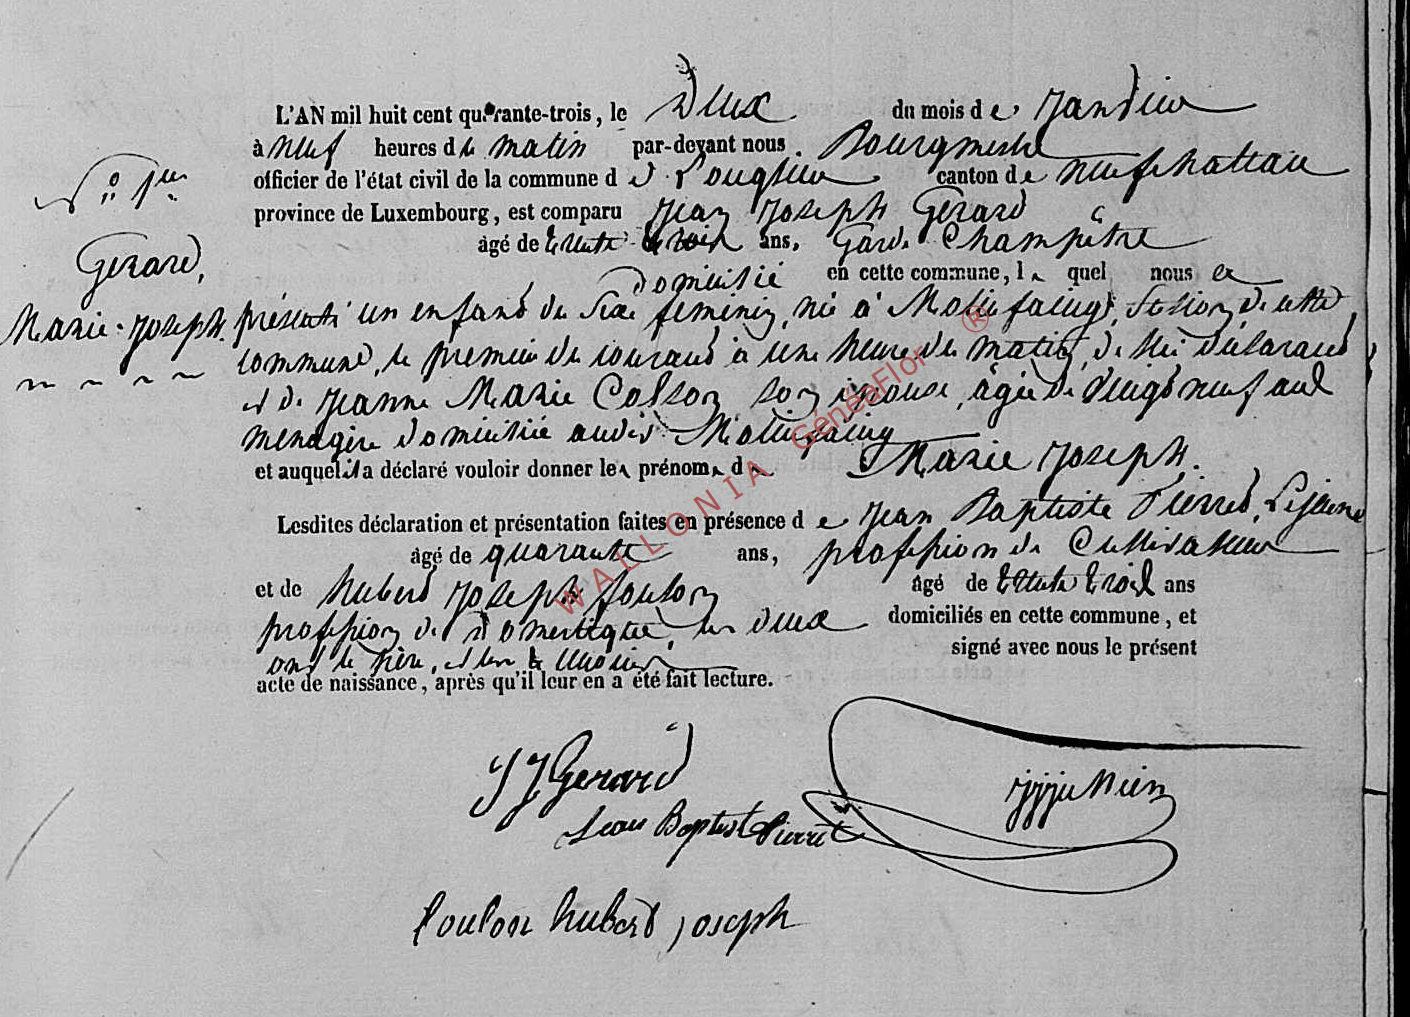 L'AN mil huit cent quarante-trois, le Deux du mois de Janvier
à neuf heures du matin par-devant nous Bourgmestre
officier de l'état civil de la commune de Longlier canton de neufchateau
province de Luxembourg, est comparu Jean Joseph Gerard
âgé de trente trois ans, Garde Champêtre
domicilié en cette commune, le quel nous a
N° 1er
Gerard,
Marie-Joseph.
présenté un enfant du sexe feminin, née à Mollefaing, section de cette
commune, le premier du courant à une heure du matin, de lui déclarant
et de Jeanne Marie Colson son épouse, âgée de vingt neuf ans
menagère domiciliée audit Mollefaing
et auquel il a déclaré vouloir donner les prénoms de Marie Joseph.
Lesdites déclaration et présentation faites en présence de Jean Baptiste Pierret, Lejeune
âgé de quarante ans, profession de Cultivateur
et de hubert Joseph foulon âgé de trente trois ans
profession de Domestique, les deux domiciliés en cette commune, et
ont le père, et les témoins signé avec nous le présent
acte de naissance, après qu'il leur en a été fait lecture.
J J Gerard
Jean Baptiste Pierret
foulon hubert joseph
WALLONIA GénéaFlor ®